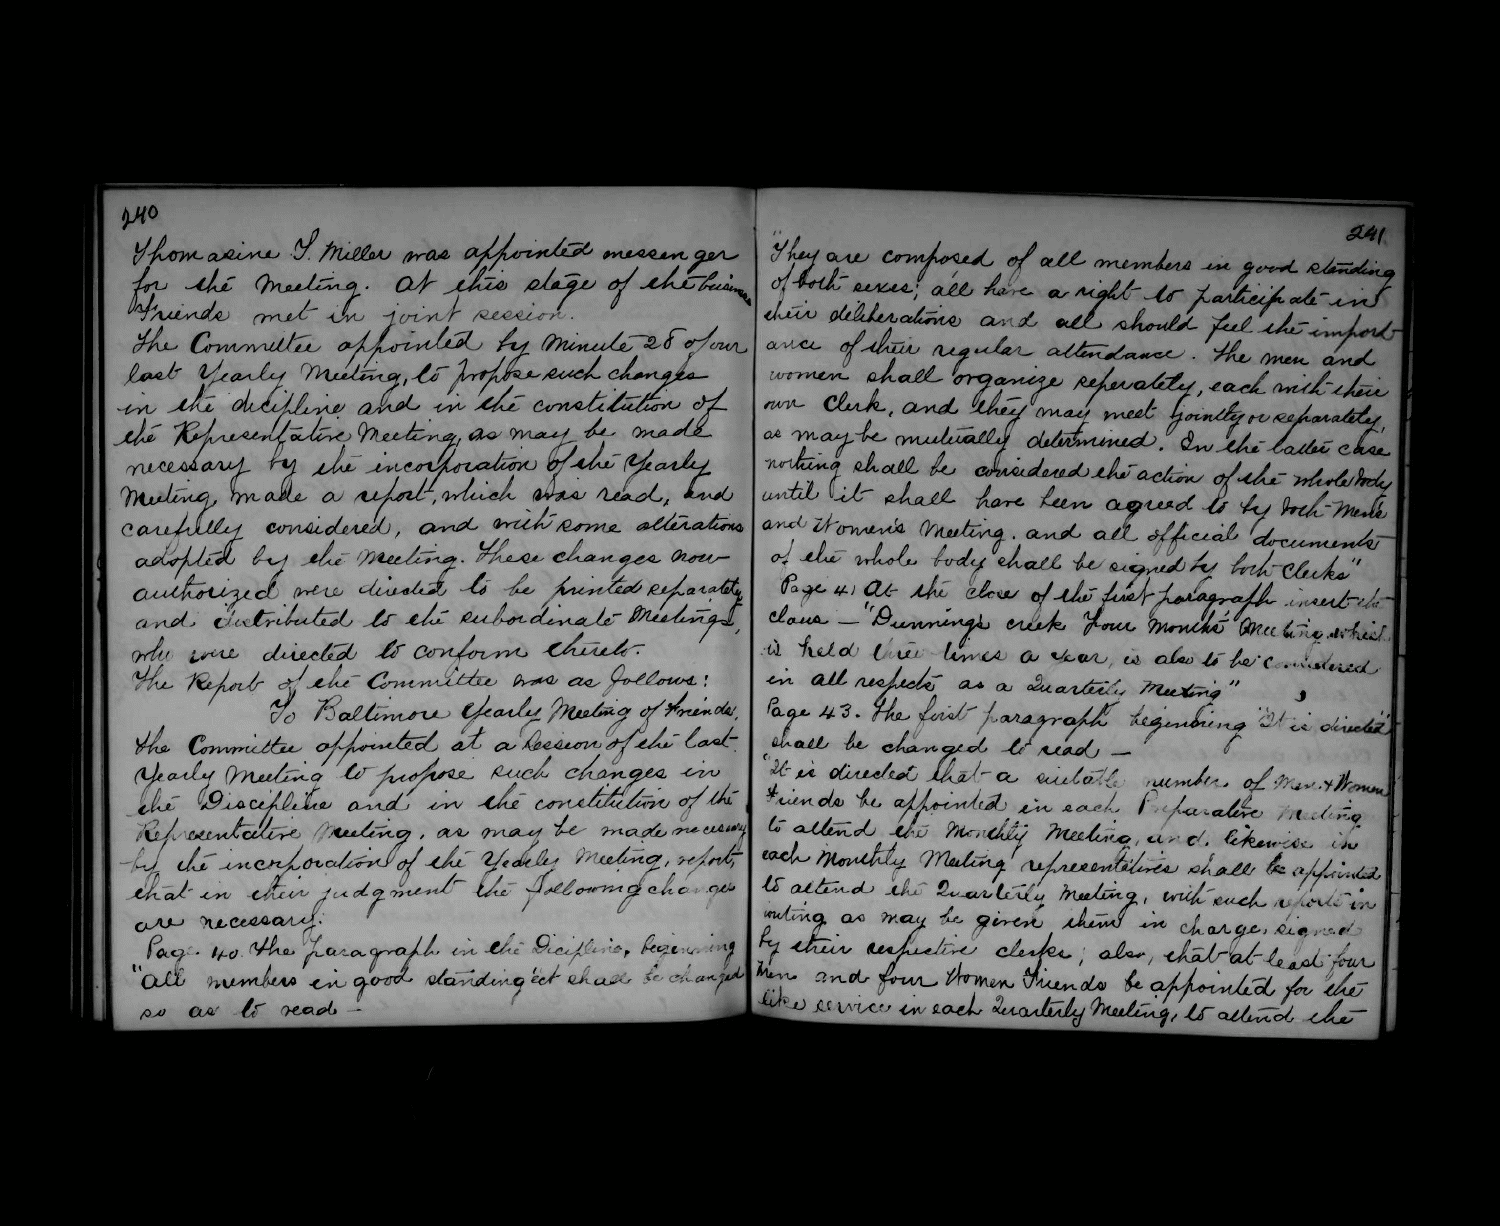 240
Thomasine T. Miller was appointed messenger
for the Meeting. At this stage of the business
Friends met in joint session.
The Committee appointed by minute 28 of our
last Yearly Meeting, to propose such changes
in the dicipline and in the constitution of
the Representative Meeting, as may be made
necessary by the incorporation of the Yearly
Meeting, made a report, which was read, and
carefully considered, and with some alterations
adopted by the Meeting. These changes now
authorized were directed to be printed separately
and distributed to the subordinate Meetings,
who were directed to conform thereto.
The Report of the Committee was as follows:
To Baltimore Yearly Meeting of Friends,
The Committee appointed at a Session of the last
Yearly Meeting to propose such changes in
the Discipline and in the constitution of the
Representative Meeting, as may be made necessary
by the incorporation of the Yearly Meeting, report,
that in their judgment the following changes
are necessary:
Page 40. The paragraph in the Dicipline, beginning
"All members in good standing" &ct shall be changed
so as to read –
241
"They are composed of all members in good standing
of both sexes; all have a right to participate in
their deliberations and all should feel the import-
ance of their regular attendance. The men and
women shall organize seperately, each with their
own Clerk, and they may meet jointly or separately,
as may be mutually determined. In the latter case
nothing shall be considered the action of the whole body
until it shall have been agreed to by both Men's
and Women's Meeting. and all official documents
of the whole body shall be signed by both Clerks"
Page 41 At the close of the first paragraph insert the
claus – "Dunning's creek Four Months' Meeting, which
is held three times a year, is also to be considered
in all respects as a Quarterly Meeting"
Page 43. The first paragraph beginning "It is directed"
shall be changed to read –
"It is directed that a suitable number of Men & Women
Friends be appointed in each Preparative Meeting
to attend the Monthly Meeting, and likewise in
each Monthly Meeting representatives shall be appointed
to attend the Quarterly Meeting, with such reports in
writing as may be given them in charge, signed
by their respective clerks; also, that at least four
Men and four Women Friends be appointed for the
like service in each Quarterly Meeting, to attend the